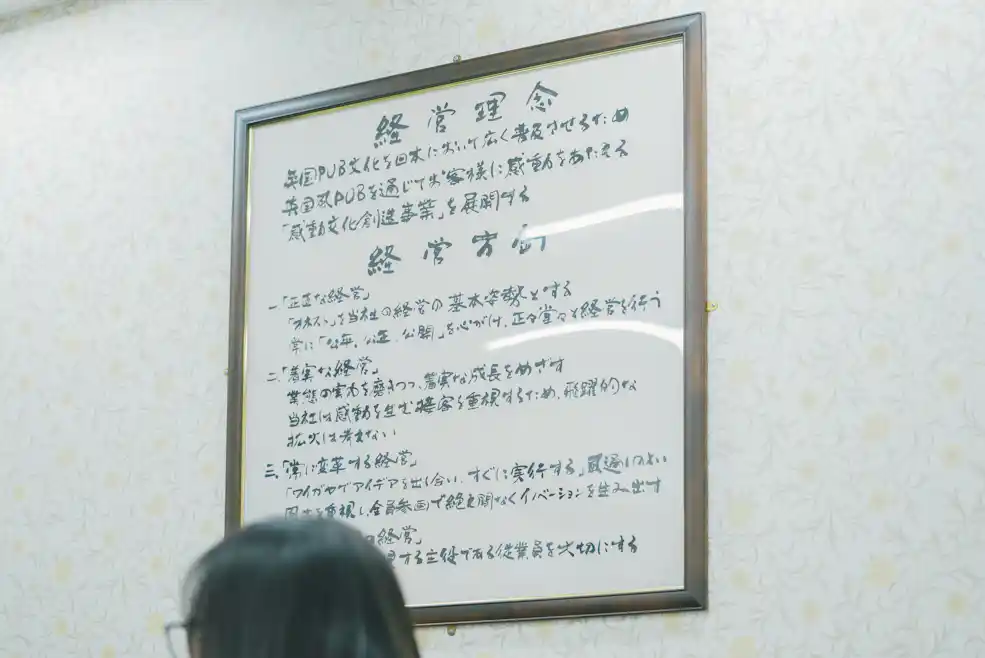 経営理念
英国PUB文化を日本において広く普及させるため
英国風PUBを通じてお客様に感動をあたえる
「感動文化創造事業」を展開する
経営方針
一、「正直な経営」
「オネスト」を当社の経営の基本姿勢とする
常に「公平、公正、公開」を心がけ、正々堂々と経営を行う
二、「着実な経営」
業態の実力を磨きつつ、着実な成長をめざす
当社は感動を生む接客を重視するため、飛躍的な
拡大は考えない
三、「常に変革する経営」
「ワイガヤでアイデアを出し合い、すぐに実行する」風通しのよい
を重視し、全員参画で絶え間なくイノベーションを生み出す
経営」
する主役である従業員を大切にする